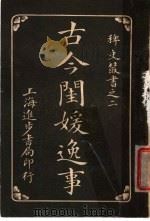 稗文叢書之二
古今閨媛逸事
上海進步書局印行